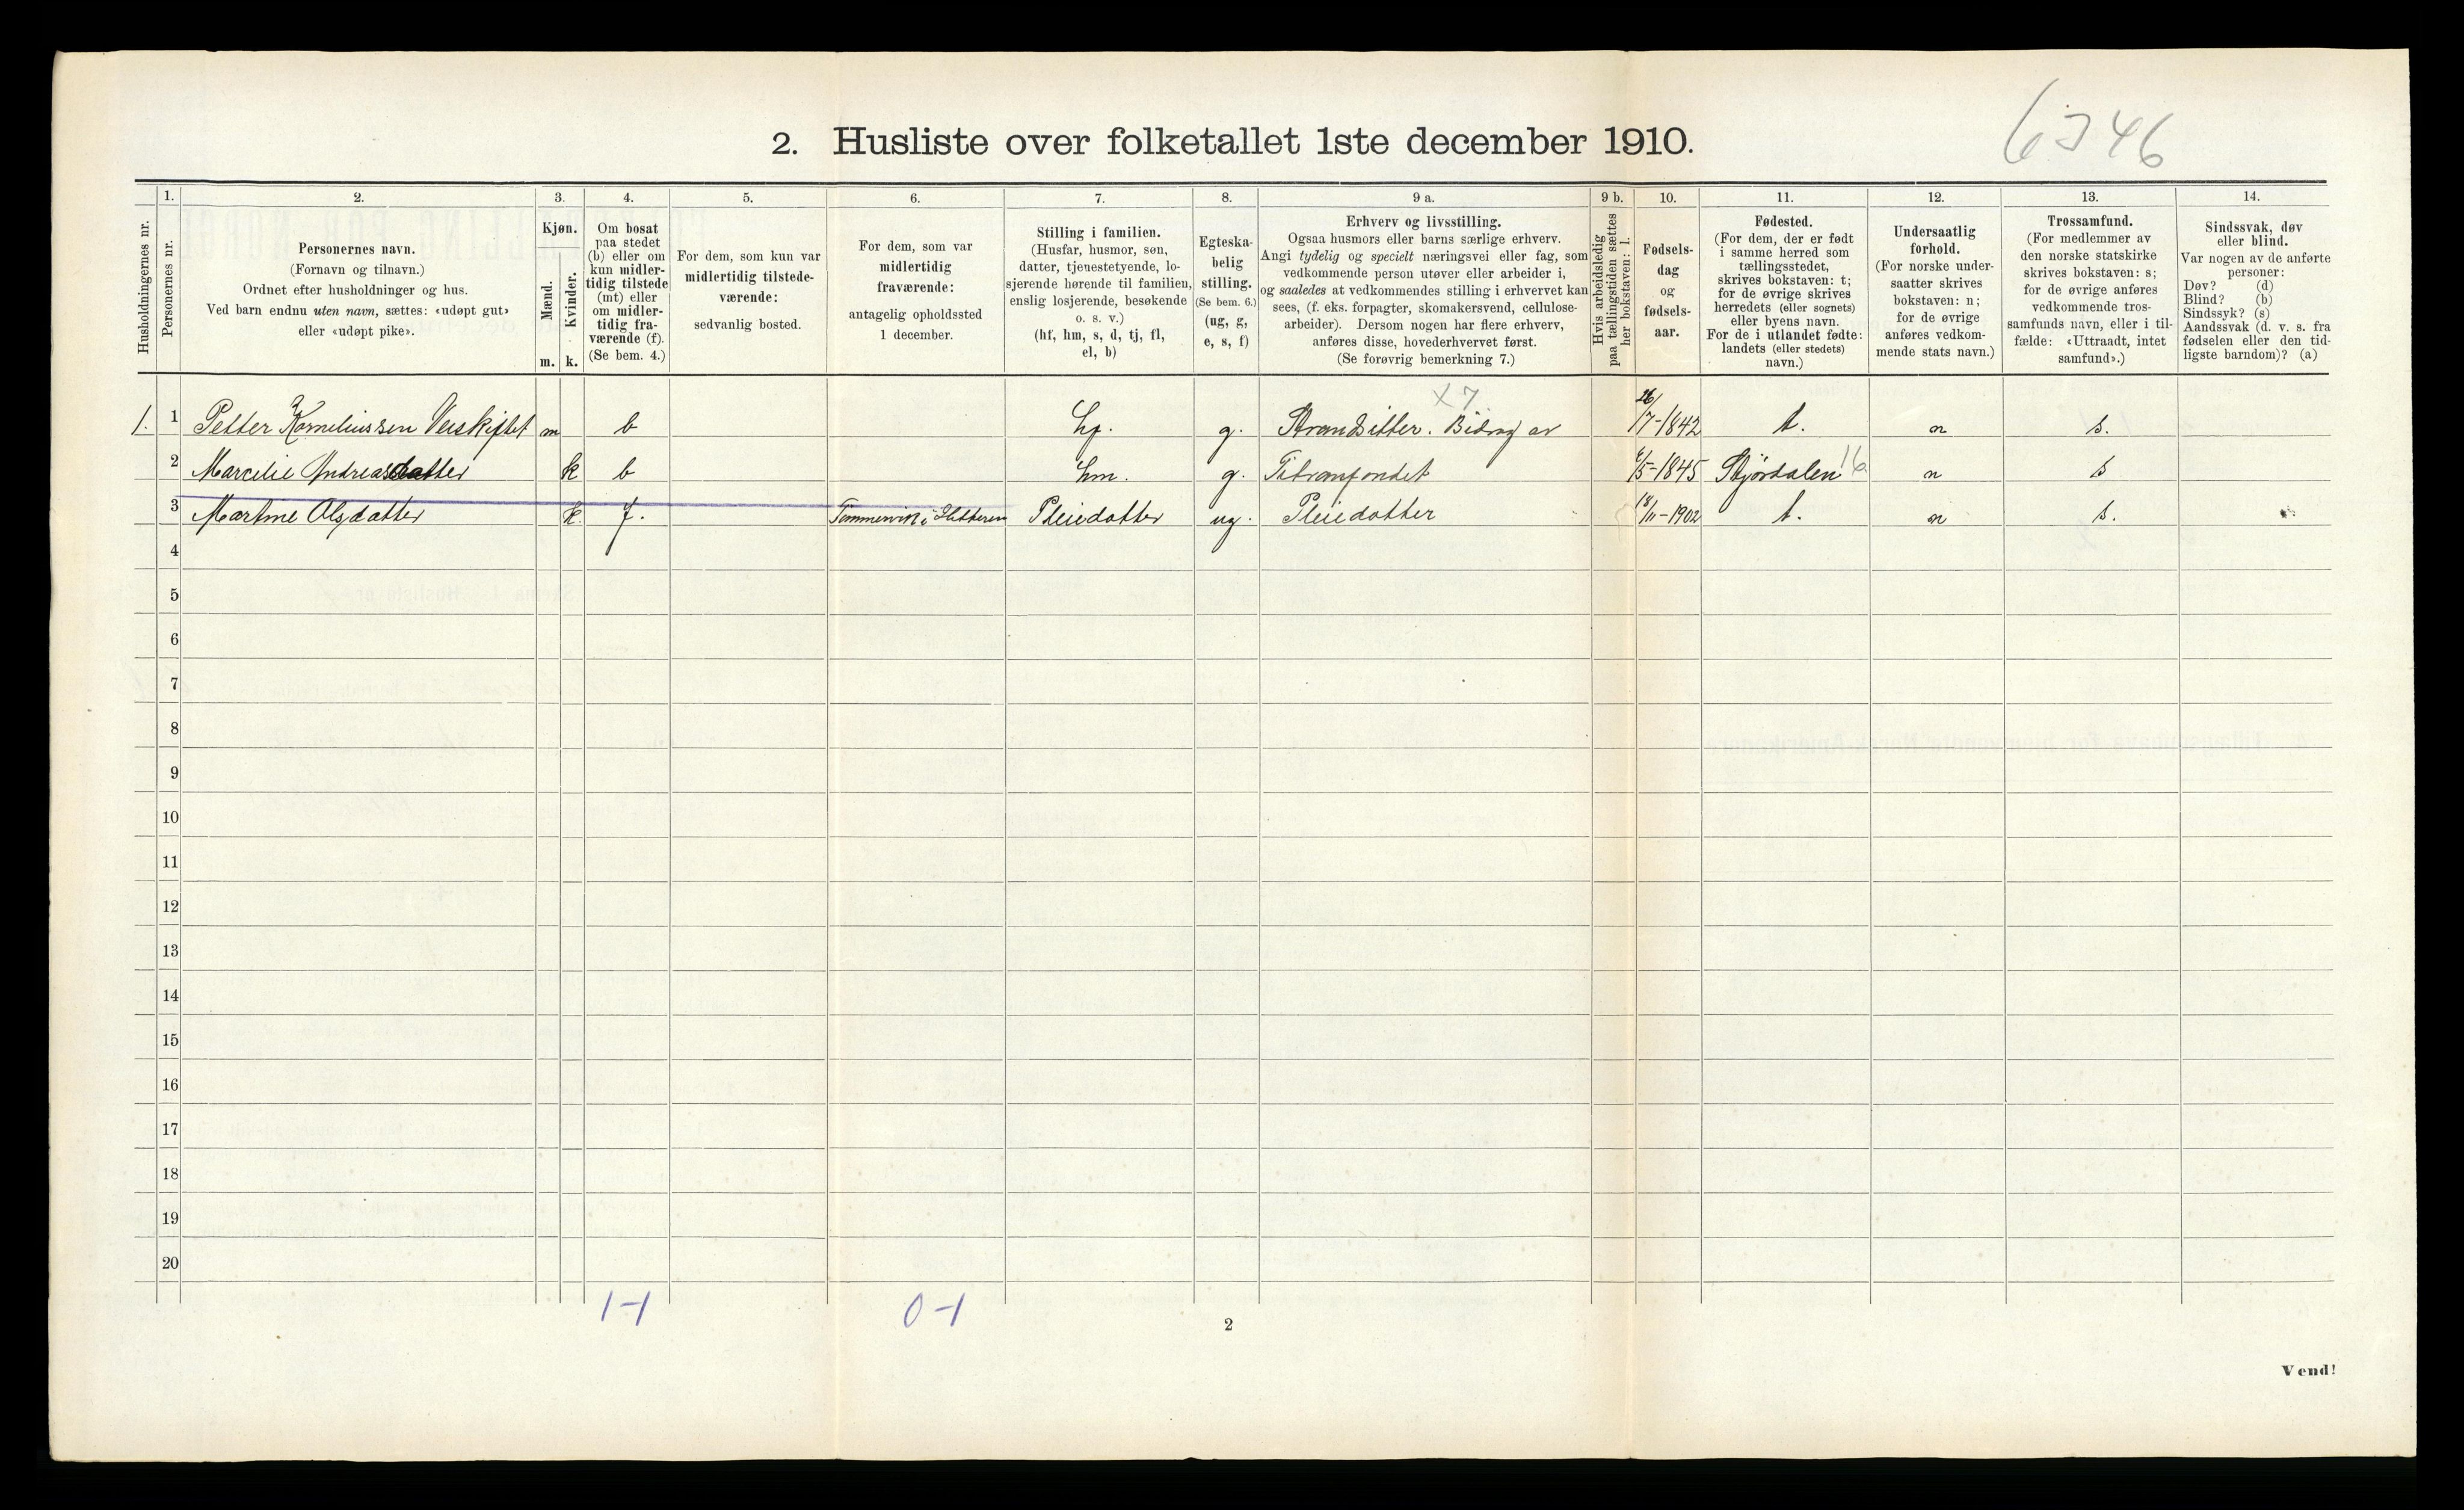 6346
2. Husliste over folketallet 1ste december 1910.
Husholdningernes nr.
1.
Personernes nr.
2.
Personernes navn.
(Fornavn og tilnavn.)
Ordnet efter husholdninger og hus.
Ved barn endnu uten navn, sættes: «udøpt gut»
eller «udøpt pike».
3.
Kjøn.
Mænd.
Kvinder.
m. k.
4.
Om bosat
paa stedet
(b) eller om
kun midler-
tidig tilstede
(mt) eller
om midler-
tidig fra-
værende (f).
(Se bem. 4.)
5.
For dem, som kun var
midlertidig tilstede-
værende:
sedvanlig bosted.
6.
For dem, som var
midlertidig
fraværende:
antagelig opholdssted
1 december.
7.
Stilling i familien.
(Husfar, husmor, søn,
datter, tjenestetyende, lo-
sjerende hørende til familien,
enslig losjerende, besøkende
o. s. v.)
(hf, hm, s, d, tj, fl,
el, b)
8.
Egteska-
belig
stilling.
(Se bem. 6.)
(ug, g,
e, s, f)
9 a.
Erhverv og livsstilling.
Ogsaa husmors eller barns særlige erhverv.
Angi tydelig og specielt næringsvei eller fag, som
vedkommende person utøver eller arbeider i,
og saaledes at vedkommendes stilling i erhvervet kan
sees, (f. eks. forpagter, skomakersvend, cellulose-
arbeider). Dersom nogen har flere erhverv,
anføres disse, hovederhvervet først.
(Se forøvrig bemerkning 7.)
9 b.
Hvis arbeidsledig
paa tællingstiden sættes
her bokstaven: l.
10.
Fødsels-
dag
og
fødsels-
aar.
11.
Fødested.
(For dem, der er født
i samme herred som
tællingsstedet,
skrives bokstaven: t;
for de øvrige skrives
herredets (eller sognets)
eller byens navn.
For de i utlandet fødte:
landets (eller stedets)
navn.)
12.
Undersaatlig
forhold.
(For norske under-
saatter skrives
bokstaven: n;
for de øvrige
anføres vedkom-
mende stats navn.)
13.
Trossamfund.
(For medlemmer av
den norske statskirke
skrives bokstaven: s;
for de øvrige anføres
vedkommende tros-
samfunds navn, eller i til-
fælde: «Uttraadt, intet
samfund».)
14.
Sindssvak, døv
eller blind.
Var nogen av de anførte
personer:
Døv? (d)
Blind? (b)
Sindssyk? (s)
Aandssvak (d. v. s. fra
fødselen eller den tid-
ligste barndom)? (a)
X 7
1. 1 Petter Korneliussen Veiskiftet m b hf. g. Strandsitter. Bidrag av 26/7-1842 t. n s.
2 Marcelie Andreasdatter k b hm. g. Titranfondet 6/5-1845 Stjørdalen 16 n s
3 Martine Olsdatter k. f. Pleiedatter ug. Pleiedatter 18/11-1902 t. n s.
4
5
6
7
8
9
10
11
12
13
14
15
16
17
18
19
20
1-1 0-1
2
Vend!